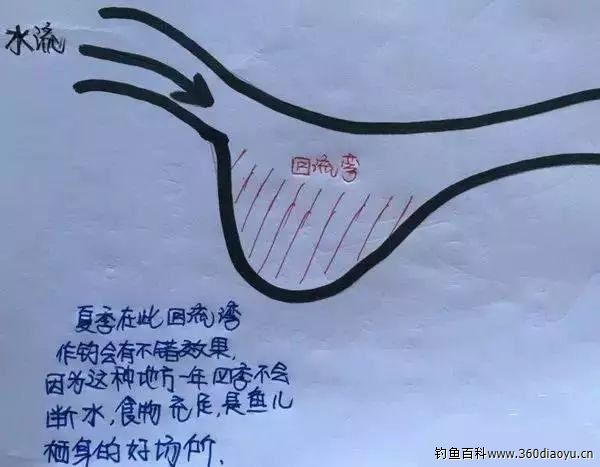 水流
回流弯
夏季在此回流湾
作钓会有不错效果,
因为这种地方一年四季不会
断水,食物充足,是鱼儿
栖身的好场所.
钓鱼百科www.360diaoyu.cn